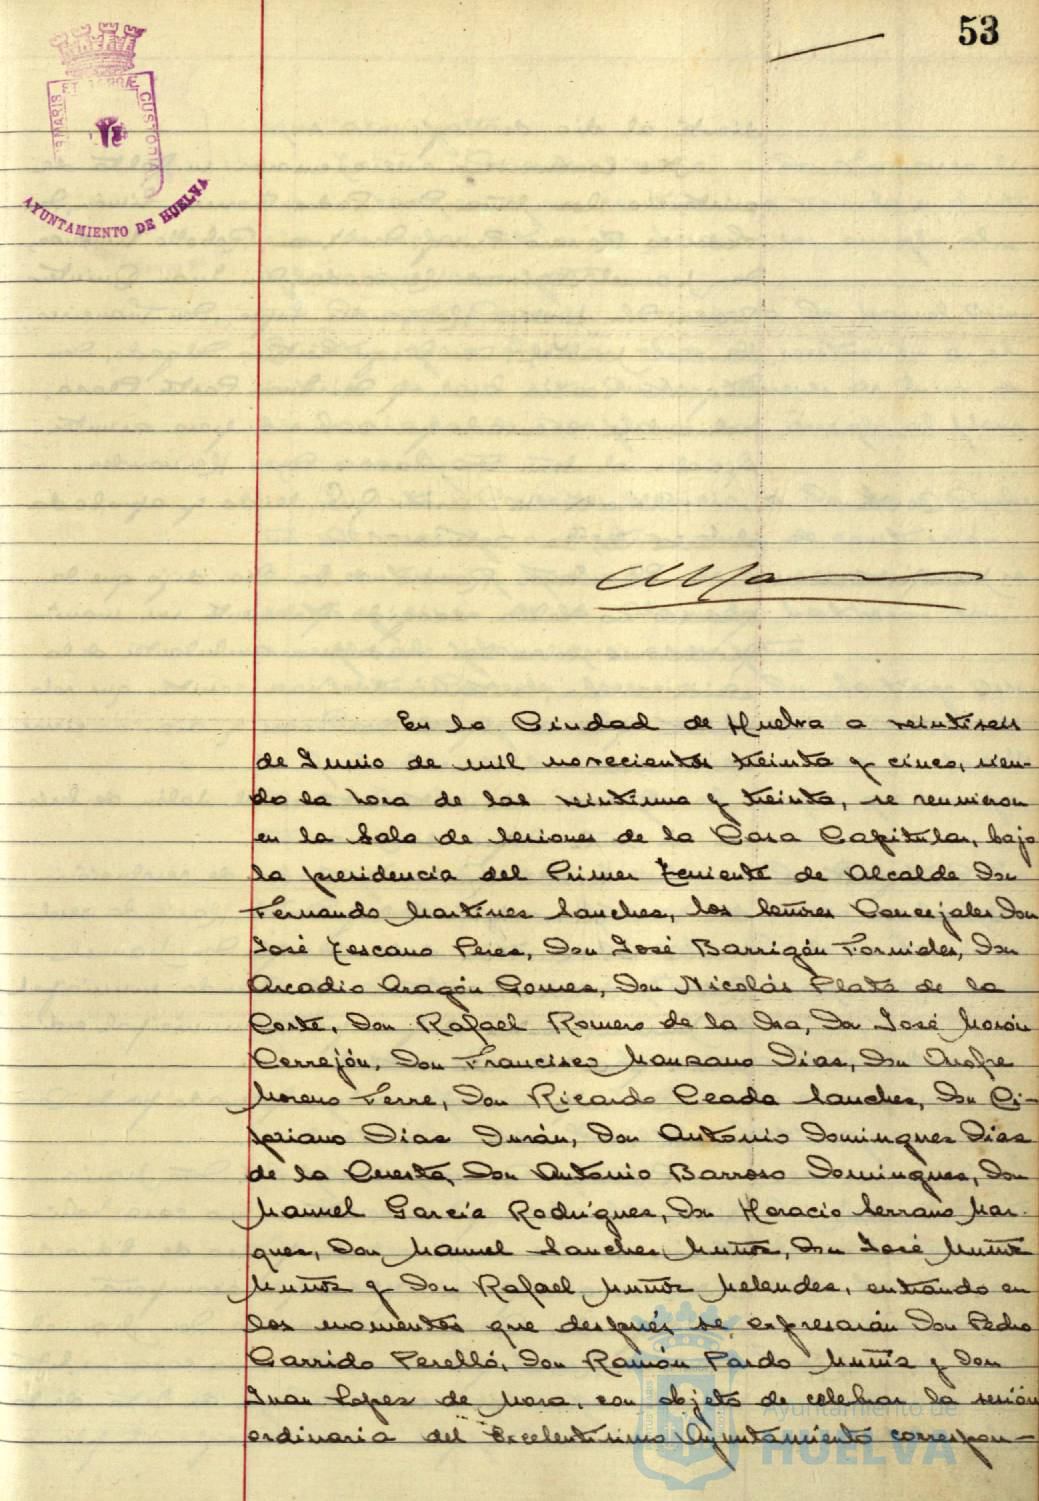 53
ET TERRAE
MARIS
CUSTODIA
AYUNTAMIENTO DE HUELVA
En la Ciudad de Huelva a veintiseis
de Junio de mil novecientos treinta y cinco, sien-
do la hora de las veintiuna y treinta, se reunieron
en la Sala de Sesiones de la Casa Capitular, bajo
la presidencia del Primer Teniente de Alcalde Don
Fernando Martinez Sanchez, los Señores Concejales Don
José Toscano Perez, Don José Barrigón Fornieles, Don
Arcadio Aragón Gomez, Don Nicolás Plata de la
Corte, Don Rafael Romero de la Osa, Don José Morón
Cerrejón, Don Francisco Manzano Diaz, Don Onofre
Moreno Ferre, Don Ricardo Ceada Sanchez, Don Ci-
priano Diaz Durán, Don Antonio Dominguez Diaz
de la Cuesta, Don Antonio Barroso Dominguez, Don
Manuel García Rodriguez, Don Horacio Serrano Mar-
quez, Don Manuel Sanchez Muñoz, Don José Muñiz
Muñoz y Don Rafael Muñoz Melendez, entrando en
los momentos que después se expresarán Don Pedro
Garrido Perelló, Don Ramón Pardo Muñiz y Don
Juan Lopez de Mora, con objeto de celebrar la sesión
ordinaria del Excelentisimo Ayuntamiento correspon-
Ayuntamiento de
HUELVA